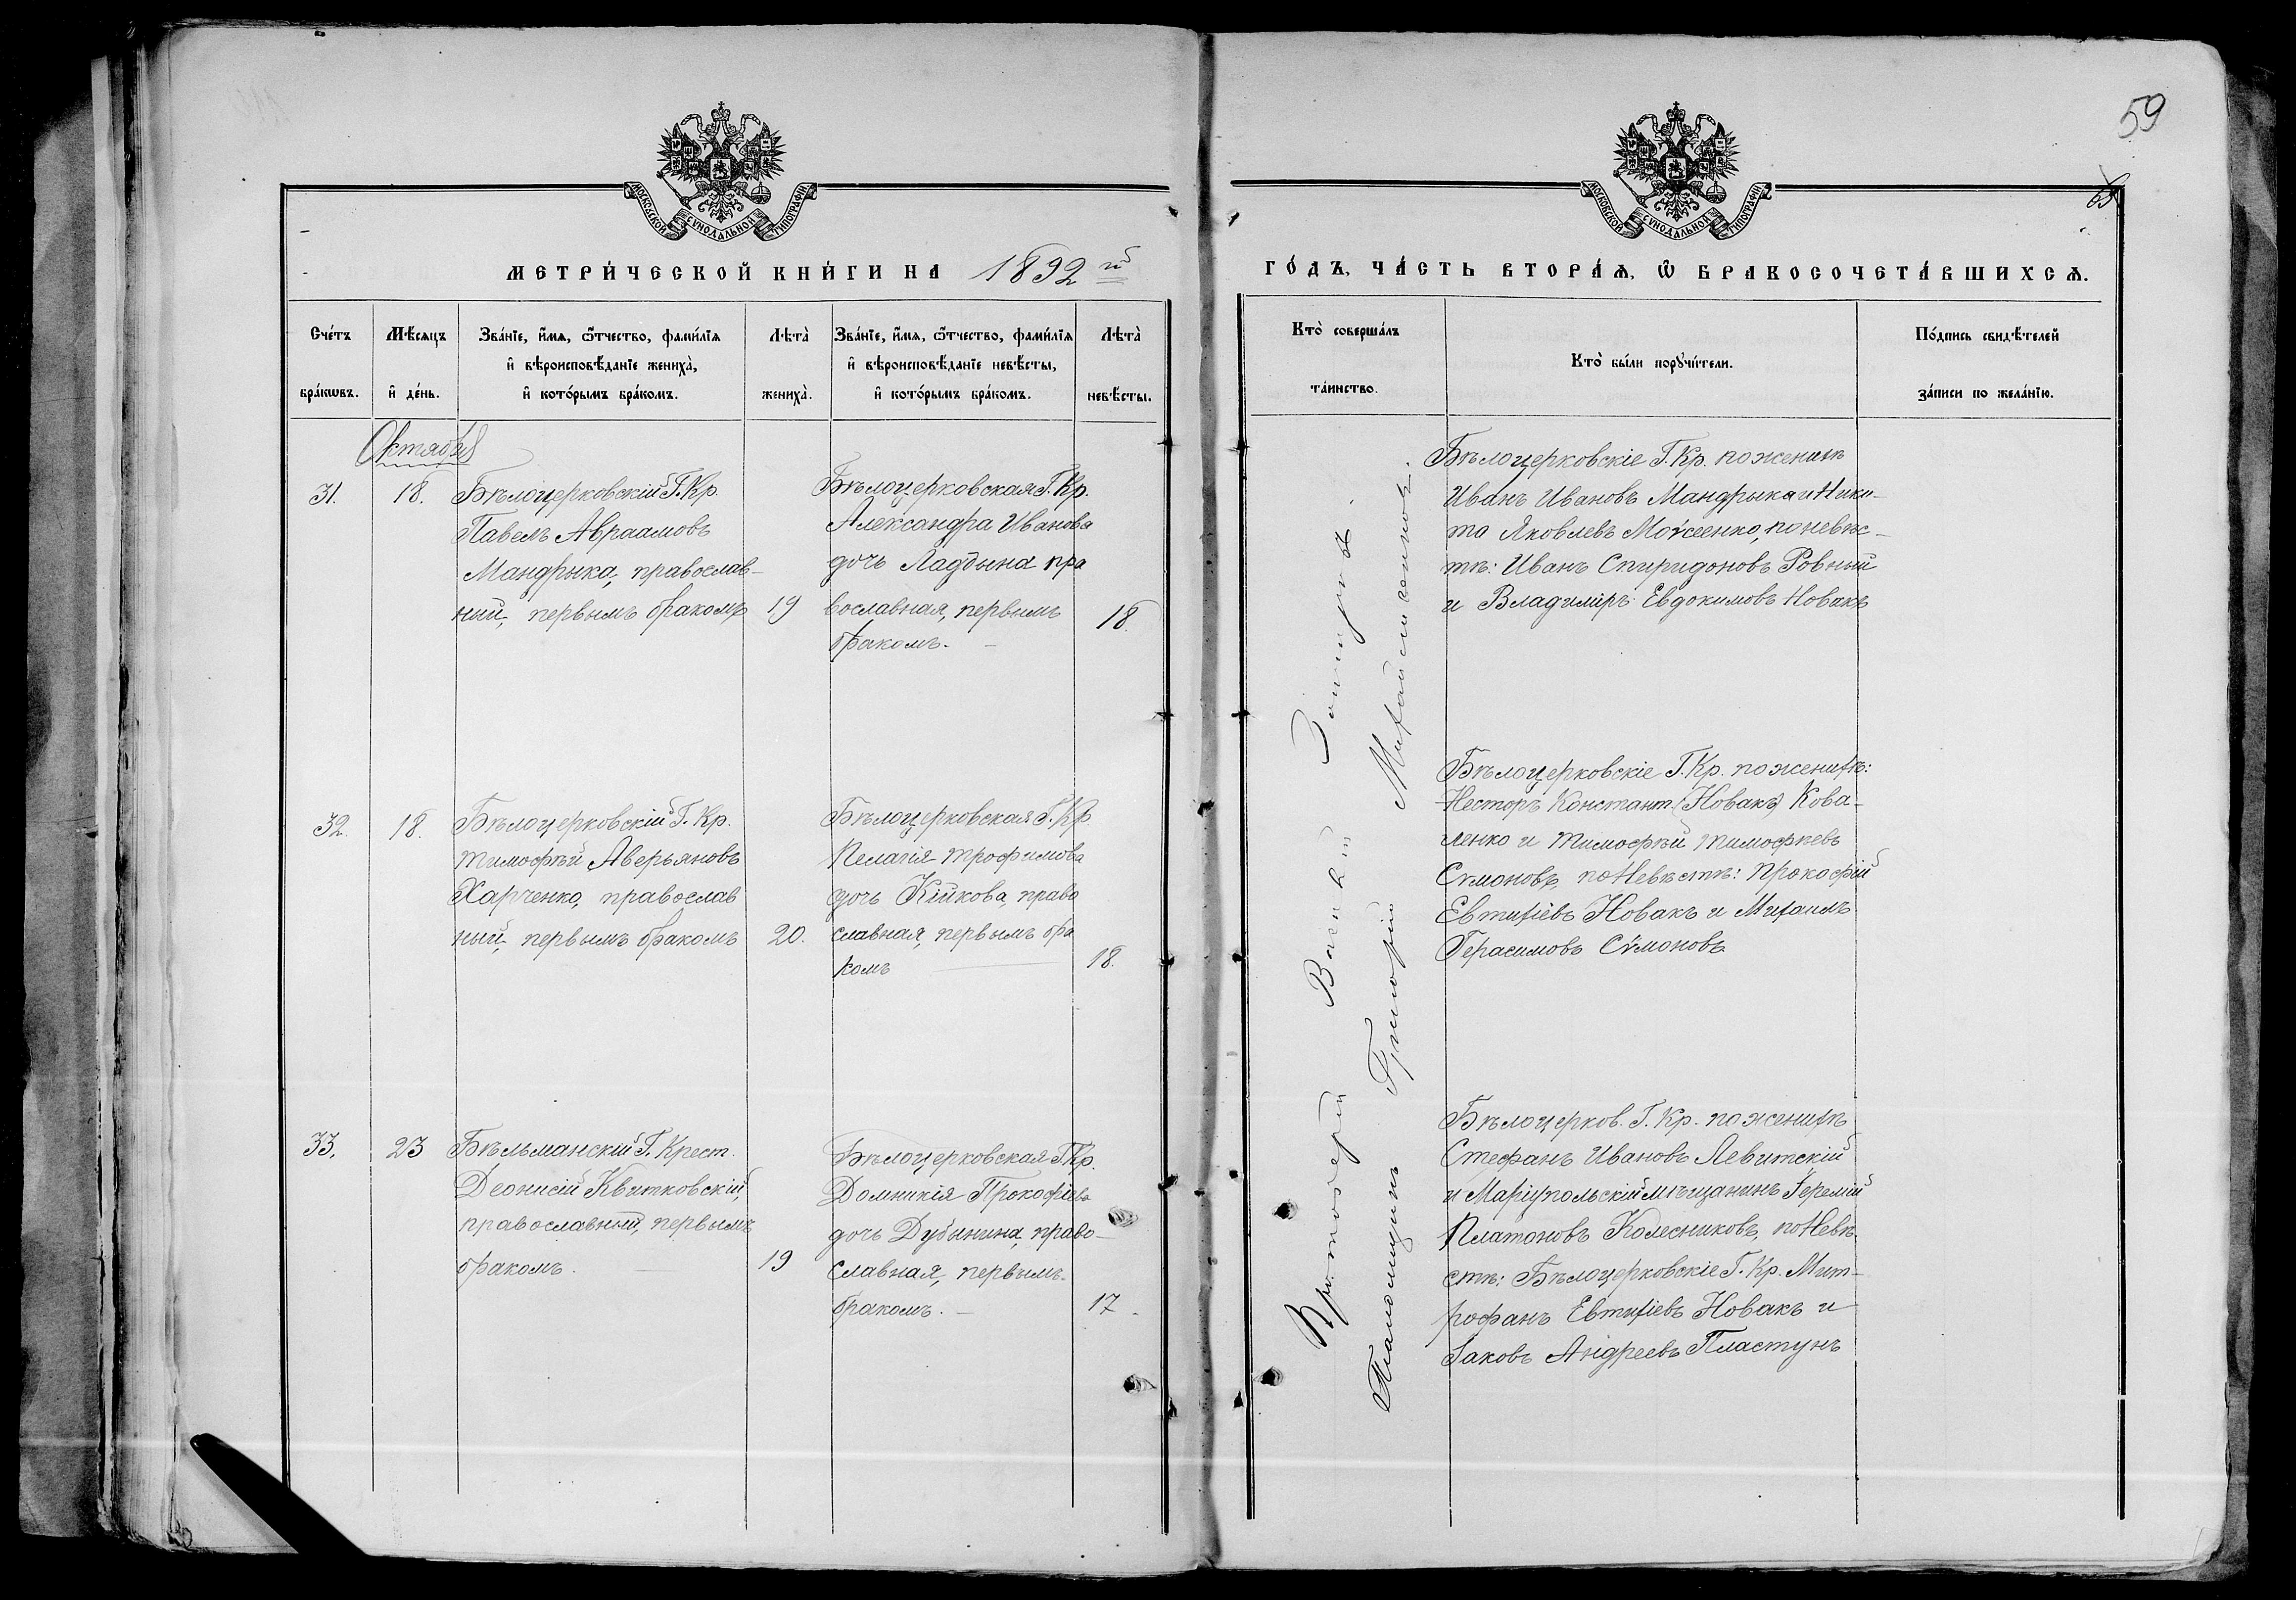 59
МОСКОВСКОЙ СѴНОДАЛЬНОЙ ТИПОГРАФІИ
МОСКОВСКОЙ СѴНОДАЛЬНОЙ ТИПОГРАФІИ
МЕТРИ́ЧЕСКОЙ КНИ́ГИ НА 1892 й
ГО́ДЪ, ЧА́СТЬ ВТОРА́Ѧ, Ѿ БРАКОСОЧЕТА́ВШИХСѦ.
Сче́тъ бра́кѡвъ.
Мѣ́сяцъ и҆ де́нь.
Зва́нїе, и҆́мѧ, ѻ҆́тчество, фами́лїѧ
и҆ вѣроисповѣ́данїе жениха̀,
и҆ кото́рымъ бра́комъ.
Лѣта̀ жениха̀.
Зва́нїе, и҆́мѧ, ѻ҆́тчество, фами́лїѧ
и҆ вѣроисповѣ́данїе невѣ́сты,
и҆ кото́рымъ бра́комъ.
Лѣта̀ невѣ́сты.
Кто̀ соверша́лъ
та́инство.
Кто̀ бы́ли порꙋчи́тели.
По́дпись свидѣ́телей
за́писи по жела́нїю.
Октябрь
31.
18.
Бѣлоцерковскій Г. Кр.
Павелъ Авраамовъ
Мандрыка, православ-
ный, первымъ бракомъ
19
Бѣлоцерковская Г. Кр.
Александра Иванова
дочь Ладына пра
вославная, первымъ
бракомъ. —
18.
Бѣлоцерковскіе Г. Кр. по женихѣ
Иванъ Ивановъ Мандрыка и Ники-
та Яковлевъ Моѵсеенко, по невѣс-
тѣ: Иванъ Спиридоновъ Ровный
и Владиміръ Евдокимовъ Новакъ
32.
18.
Бѣлоцерковскій Г. Кр.
Тимоѳей Аверьяновъ
Харченко, православ
ный, первымъ бракомъ
20.
Бѣлоцерковская Г. Кр.
Пелагія Трофимова
дочь Кійкова, право
славная, первымъ бра
комъ
18.
Бѣлоцерковскіе Г. Кр. по женихѣ:
Несторъ Констант. (Новакъ) Кова-
ленко и Тимофѣй Тимофѣевъ
Сѵмоновъ, по Невѣстѣ: Прокофій
Евтихіевъ Новакъ и Михаилъ
Герасимовъ Сѵмоновъ
33.
23
Бѣльманскій Г. Крест.
Деонисій Квитковскій,
православный, первымъ
бракомъ.
19
Бѣлоцерковская Г. Кр.
Домникія Прокофіева
дочь Дубынина, право-
славная, первымъ
бракомъ. —
17
Бѣлоцерков. Г. Кр. по женихѣ
Стефанъ Ивановъ Левитскій
и Маріупольскій мѣщанинъ Іеремій
Платоновъ Колесниковъ, по Невѣ
стѣ: Бѣлоцерковскіе Г. Кр. Мит-
рофанъ Евтихіевъ Новакъ и
Іаковъ Андреевъ Пластунъ
Григорій